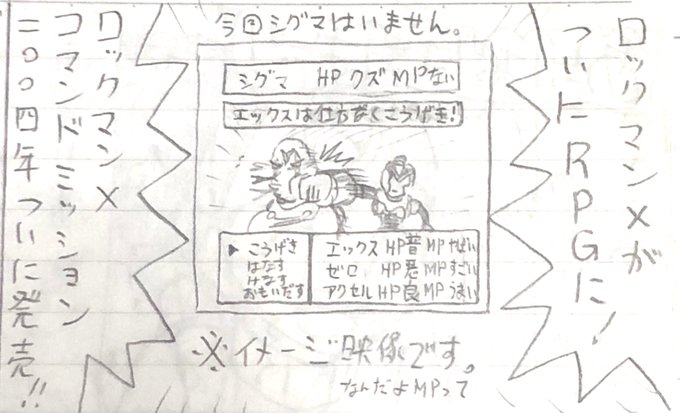 ロックマンXが
ついにRPGに!
今回シグマはいません。
シグマ HP クズ MP ない
エックスは仕方なくこうげき!
▶こうげき
はなす
みなす
おもいだす
エックス HP 普 MP やばい
ゼロ HP 悪 MP すごい
アクセル HP 良 MP うまい
※イメージ映像です。
なんだよMPって
ロックマンX
コマンドミッション
二〇〇四年ついに発売!!